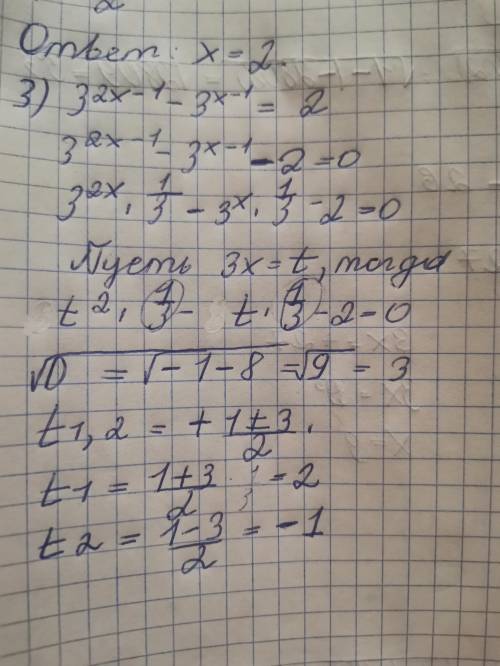 Ответ: x = 2.
3) 3^{2x-1} - 3^{x-1} = 2
3^{2x-1} - 3^{x-1} - 2 = 0
3^{2x} · \frac{1}{3} - 3^x · \frac{1}{3} - 2 = 0
Пусть 3x = t, тогда
t^2 · \frac{1}{3} - t · \frac{1}{3} - 2 = 0
√D = √-1-8 = √9 = 3
t1,2 = + \frac{1±3}{2}.
t1 = \frac{1+3}{2} = 2
t2 = \frac{1-3}{2} = -1